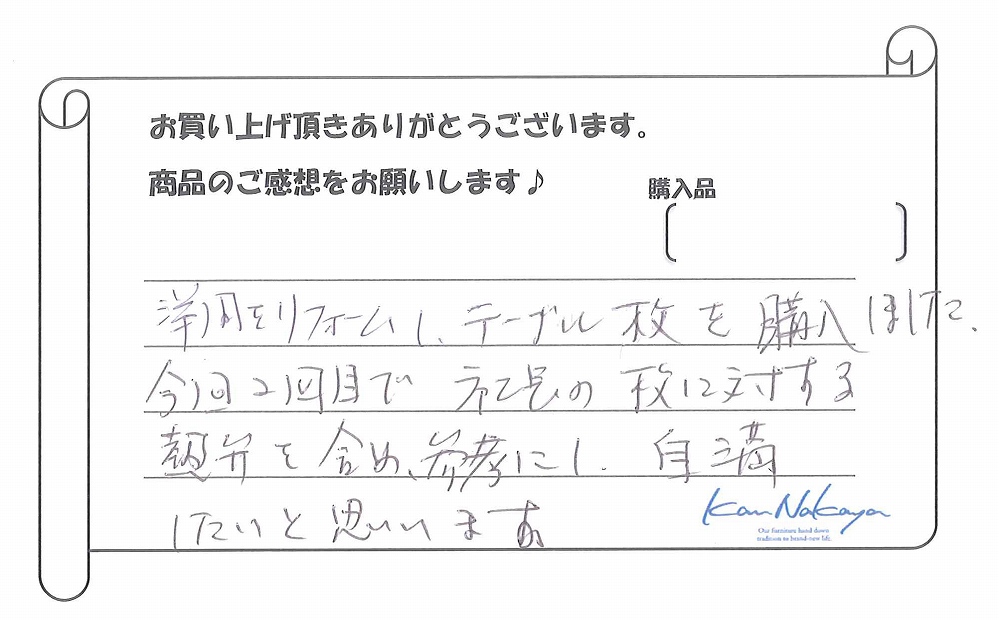 お買い上げ頂きありがとうございます。
商品のご感想をお願いします♪
購入品
洋間をリフォームし、テーブル枚を購入しました、
今回2回目で社長の枚に対する
熱弁を含め、参考にし、自満
したいと思いいます
Kan Nakaya
Our furniture hand down
tradition to brand-new life.